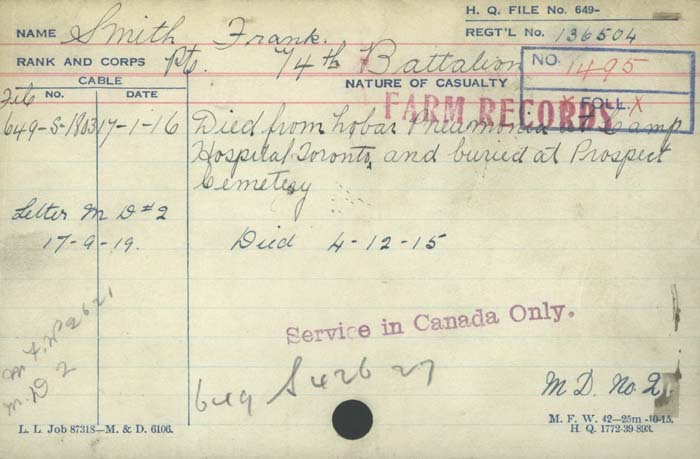 H. Q. FILE No. 649-
NAME Smith Frank.
REGT'L No. 136504
RANK AND CORPS Pt. 74th Battalion
NO. 1495
CABLE
NATURE OF CASUALTY
NO. DATE
FARM RECORDS
X FOLL. X
File
649-S-1803 17-1-16 Died from Lobar Pneumonia at Camp
Hospital Toronto, and buried at Prospect
Cemetery
Letter M D #2
17-9-19. Died 4-12-15
Service in Canada Only.
M. F. W. 2621
M. D 2
649 S 42627
M D. No. 2
L. L. Job 87318—M. & D. 6106.
M. F. W. 42—25m-10-15.
H. Q. 1772-39-893.